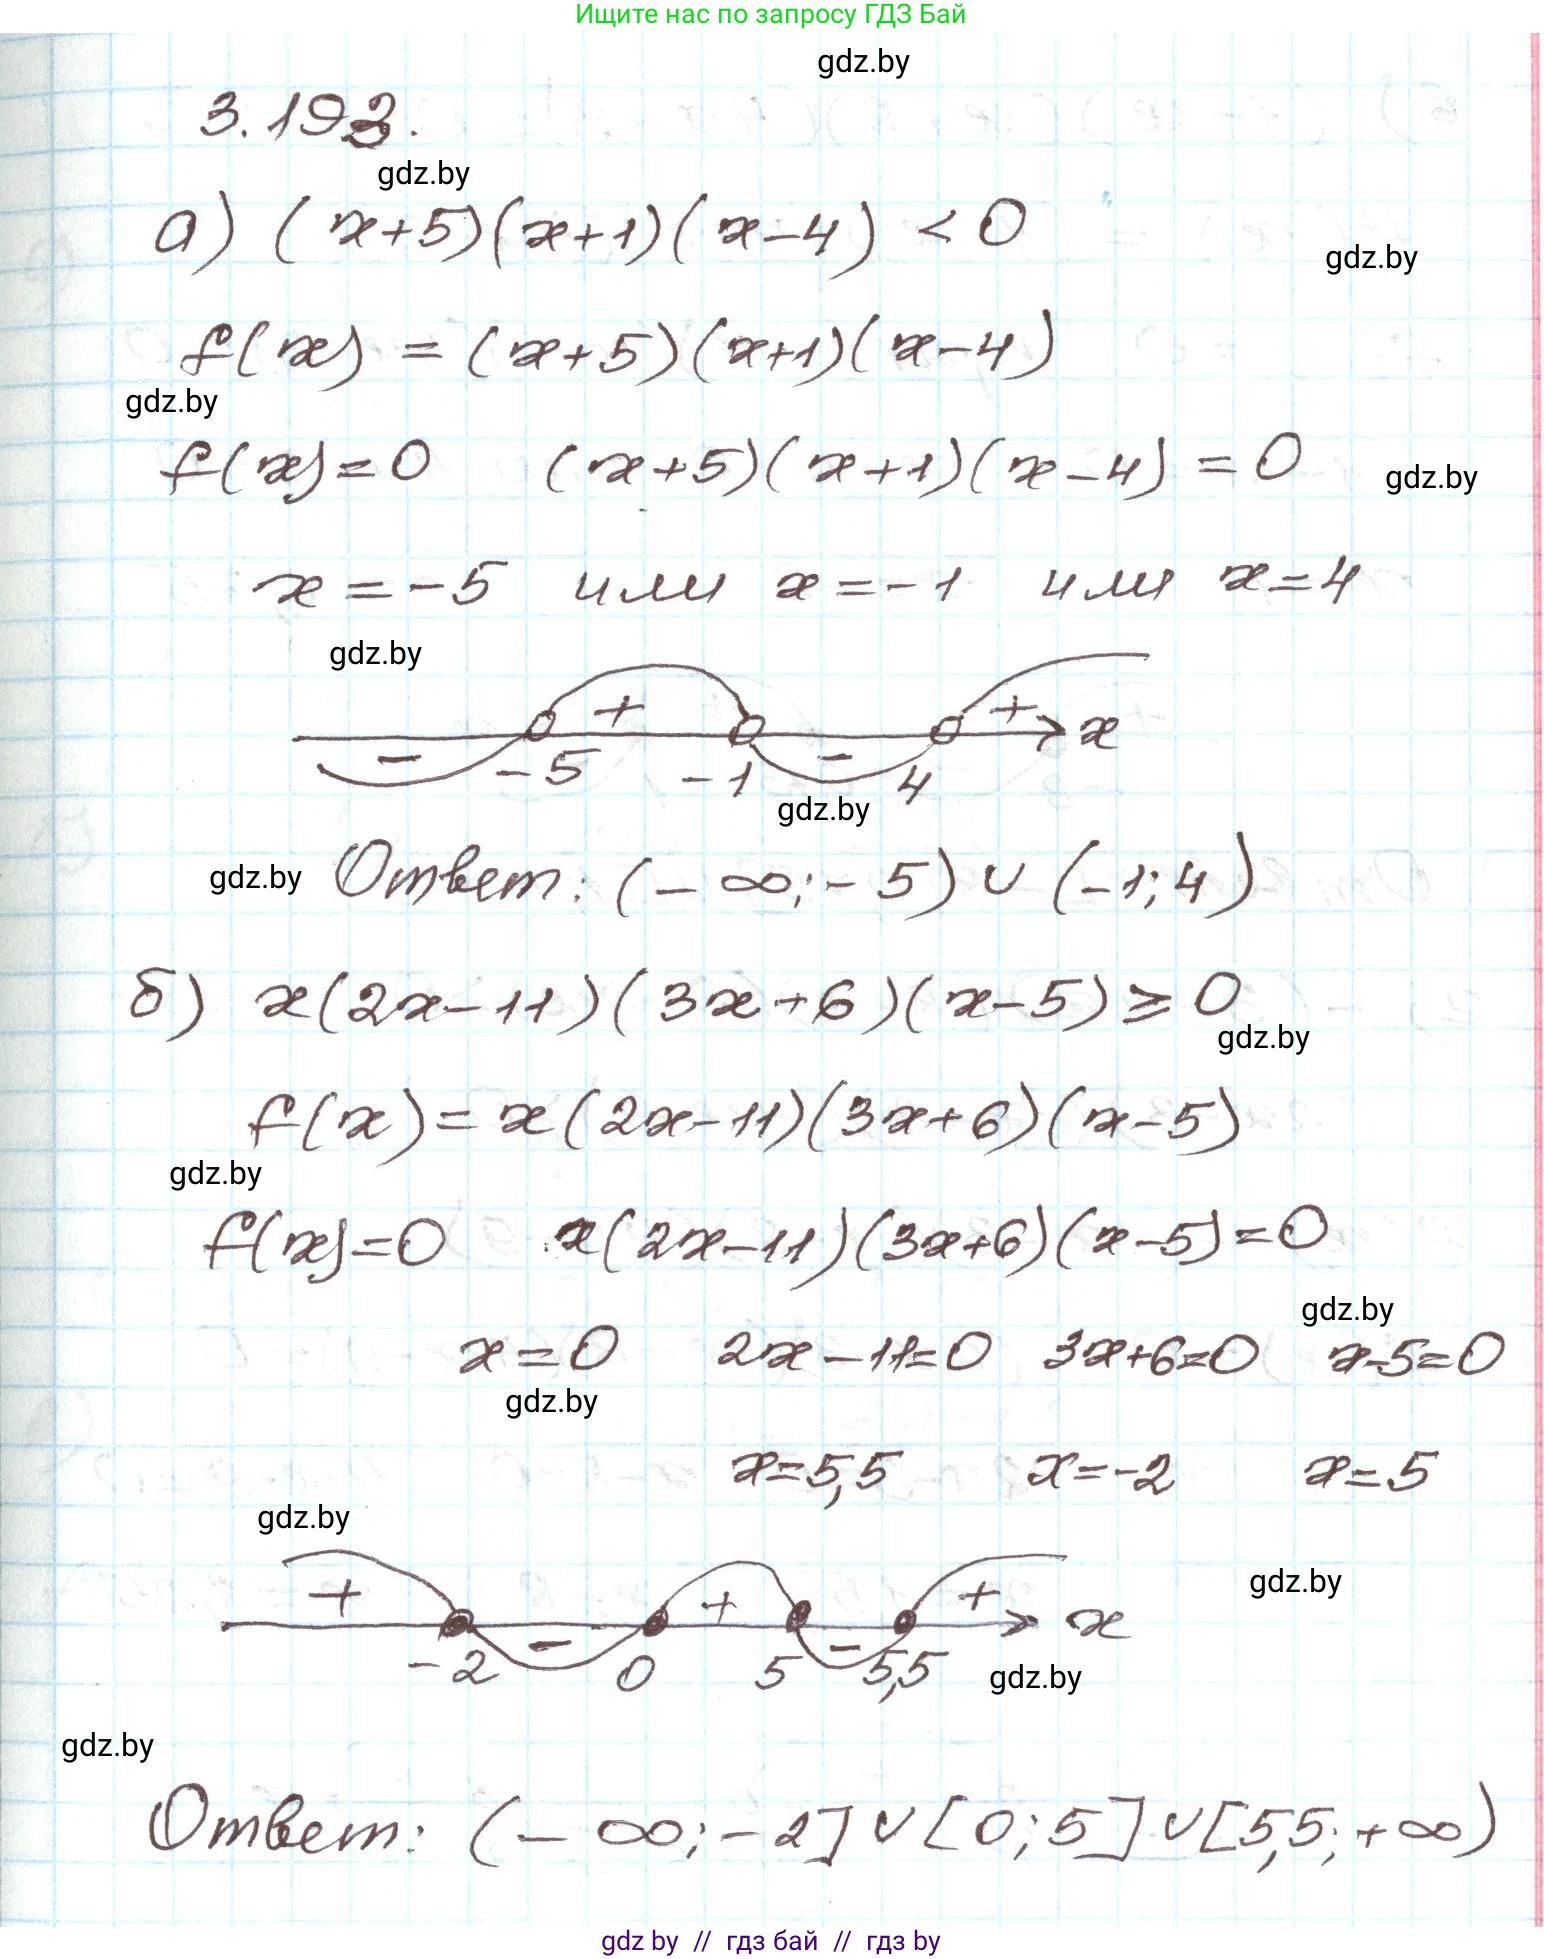 Ищите нас по запросу ГДЗ Бай
gdz.by
3.193.
gdz.by
а) (x+5)(x+1)(x-4) < 0
gdz.by
f(x) = (x+5)(x+1)(x-4)
gdz.by
f(x)=0 (x+5)(x+1)(x-4) = 0
gdz.by
x = -5 или x = -1 или x = 4
gdz.by
+ + x
- -5 -1 - 4
gdz.by
gdz.by
Ответ: (-∞; -5) ∪ (-1; 4)
б) x(2x-11)(3x+6)(x-5) ≥ 0
gdz.by
f(x) = x(2x-11)(3x+6)(x-5)
gdz.by
f(x)=0 x(2x-11)(3x+6)(x-5)=0
gdz.by
x=0 2x-11=0 3x+6=0 x-5=0
gdz.by
x=5,5 x=-2 x=5
gdz.by
gdz.by
+ + + x
-2 - 0 5 - 5,5
gdz.by
gdz.by
Ответ: (-∞; -2] ∪ [0; 5] ∪ [5,5; +∞)
gdz by // гдз бай // гдз by